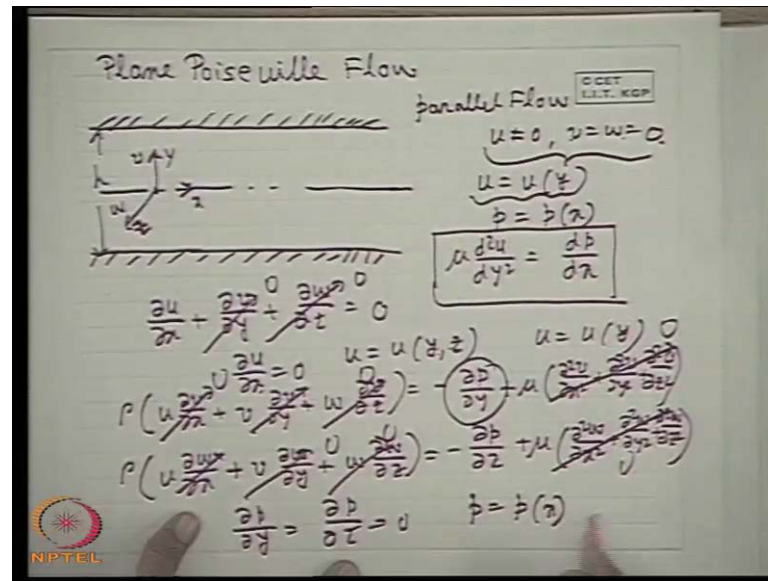 Plane Poiseuille Flow
© CET
I.I.T. KGP
parallel Flow
u ≠ 0, v = w = 0.
u = u(y)
p = p(x)
μ d²u/dy² = dp/dx
h
v y
x
w z
∂u/∂x + ∂v/∂y 0 + ∂w/∂z 0 = 0
∂u/∂x = 0
u = u(y, z)
u = u(y)
ρ(u ∂v/∂x + v ∂v/∂y + w ∂v/∂z) = - ∂p/∂y + μ(∂²v/∂x² + ∂²v/∂y² + ∂²v/∂z²) 0
ρ(u ∂w/∂x + v ∂w/∂y + w ∂w/∂z) = - ∂p/∂z + μ(∂²w/∂x² + ∂²w/∂y² + ∂²w/∂z²) 0
∂p/∂y = ∂p/∂z = 0
p = p(x)
NPTEL